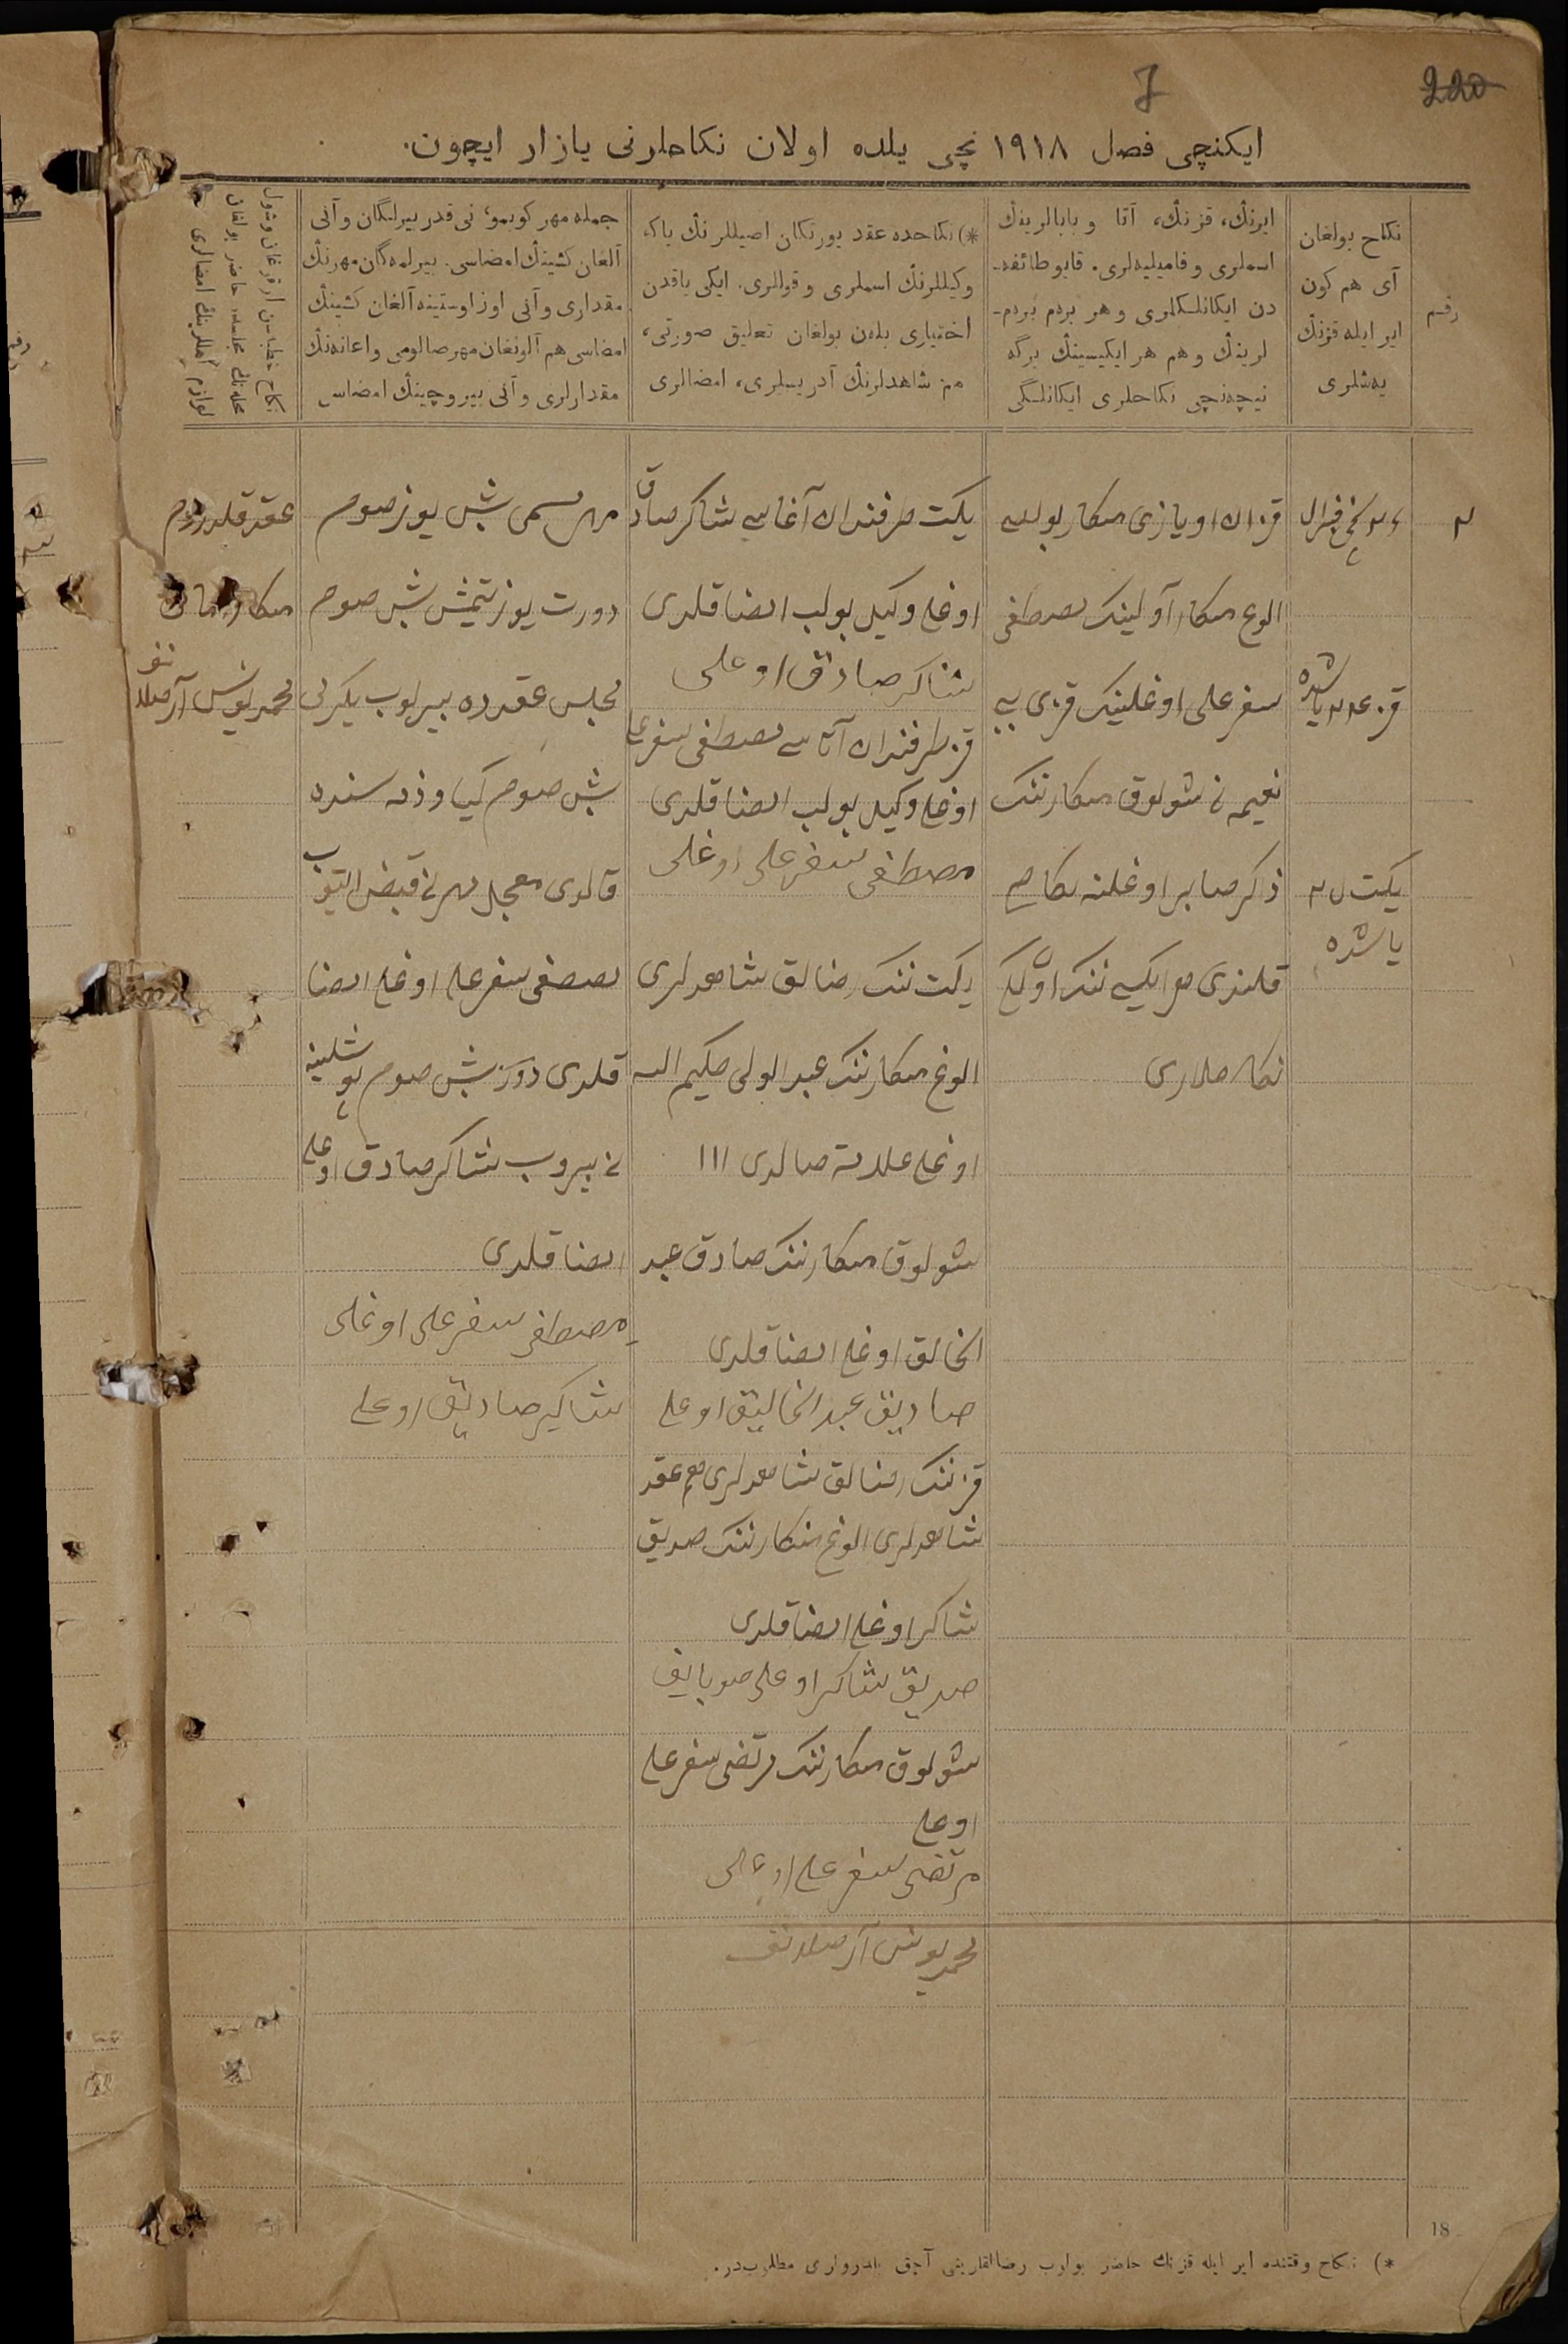 220
7
ایکنچی فصل ۱۹۱۸ نچی یلده اولان نکاحلرنی یازار ایچون.
رقم
نکاح بولغان
آی هم کون
ایر ایله قزنڭ
یه‌شلری
ایرنڭ، قزنڭ، آتا و بابالرینڭ
اسملری و فامیلیه‌لری. قایو طائفه‌ـ
دن ایکانلکلری و هر بردم بردم ـ
لرینڭ و هم هر ایکیسینڭ برگه
نیچه‌نچی نکاحلری ایکانلگی
*) نکاحده عقد یورتکان اصیللرنڭ یاکه
وکیللرنڭ اسملری و قوللری. ایکی یاقدن
اختیاری بلەن بولغان تعلیق صورتی،
هم شاهدلرنڭ آدریسلری، امضالری
جمله مهر کوبمو، نی قدر بیرلگان و آنی
آلغان کشینڭ امضاسی. بیرلمه‌گان مهرنڭ
مقداری و آنی اوز اوستینه آلغان کشینڭ
امضاسی هم آلونغان مهر صالومی و اعانه‌نڭ
مقدارلری و آنی بیروچینڭ امضاسی
نکاح خطبه‌سن اوقوغان وشول
محله‌نڭ مجلسده حاضر بولغان
لوازم اهللرینڭ امضالری
۲
قزان اویازی منکار بولسی
الوغ منکار آولینڭ مصطفی
سفرعلی اوغلینڭ قزی بی بی
نعیمه نی شولوق منکارننڭ
ذاکر صابر اوغلنه نکاح
قلندی هر ایکیسی ننڭ اولگی
نکاحلاری
قز ۲۲ یاشده
یکت ۲۰
یاشده
یکت طرفندان آغاسی شاکر صادق
اوغلی وکیل بولب امضا قلدی
شاکر صادق اوغلی
قز طرفندان آتاسی مصطفی سفرعلی
اوغلی وکیل بولب امضا قلدی
مصطفی سفرعلی اوغلی
یکت ننڭ رضالق شاهدلری
الوغ منکارننڭ عبدالولی حکیم الله
اوغلی علامة صالدی ۱۱۱
شولوق منکارننڭ صادق عبد
الخالق اوغلی امضا قلدی
صادیق عبدالخالیق اوغلی
قزننڭ رضالق شاهدلری هم عقد
شاهدلری الوغ منکارننڭ صدیق
شاکر اوغلی امضا قلدی
صدیق شاکر اوغلی
شولوق منکارننڭ مرتضی سفرعلی
اوغلی
مرتضی سفرعلی اوغلی
محمدیونس آرصلانف
مهر مسمی بش یوز صوم
دورت یوز یتمش بش صوم
مجلس عقدده بیرلوب یکرمی
بش صوم کیاو ذمه سنده
قالدی معجل مهرنی قبض ایتوب
مصطفی سفرعلی اوغلی امضا
قلدی
نی بیروب شاکر صادق اوغلی
امضا قلدی
مصطفی سفرعلی اوغلی
شاکیر صادیق اوغلی
عقد قلدردم
محمدیونس آرصلانف
18
*) نکاح وقتنده ایر ایله قزنڭ حاضر بولوب رضالقلرینی آچق بلدرولری مطلوبدر.